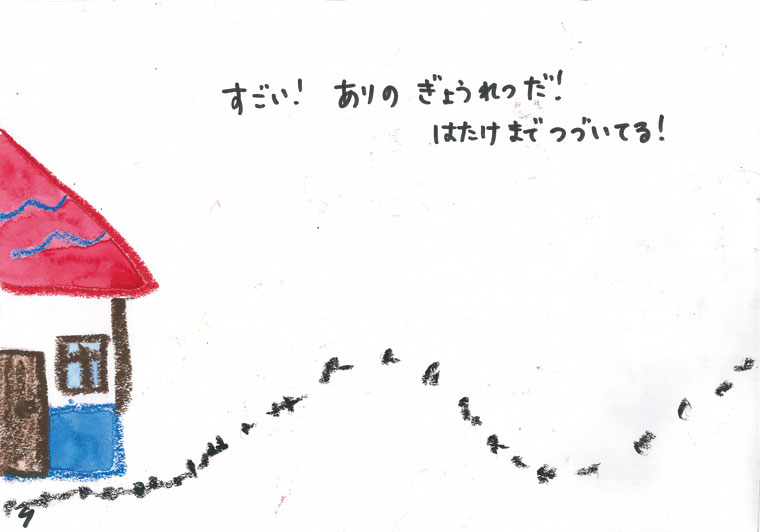 すごい! ありの ぎょうれつだ!
はたけまでつづいてる!